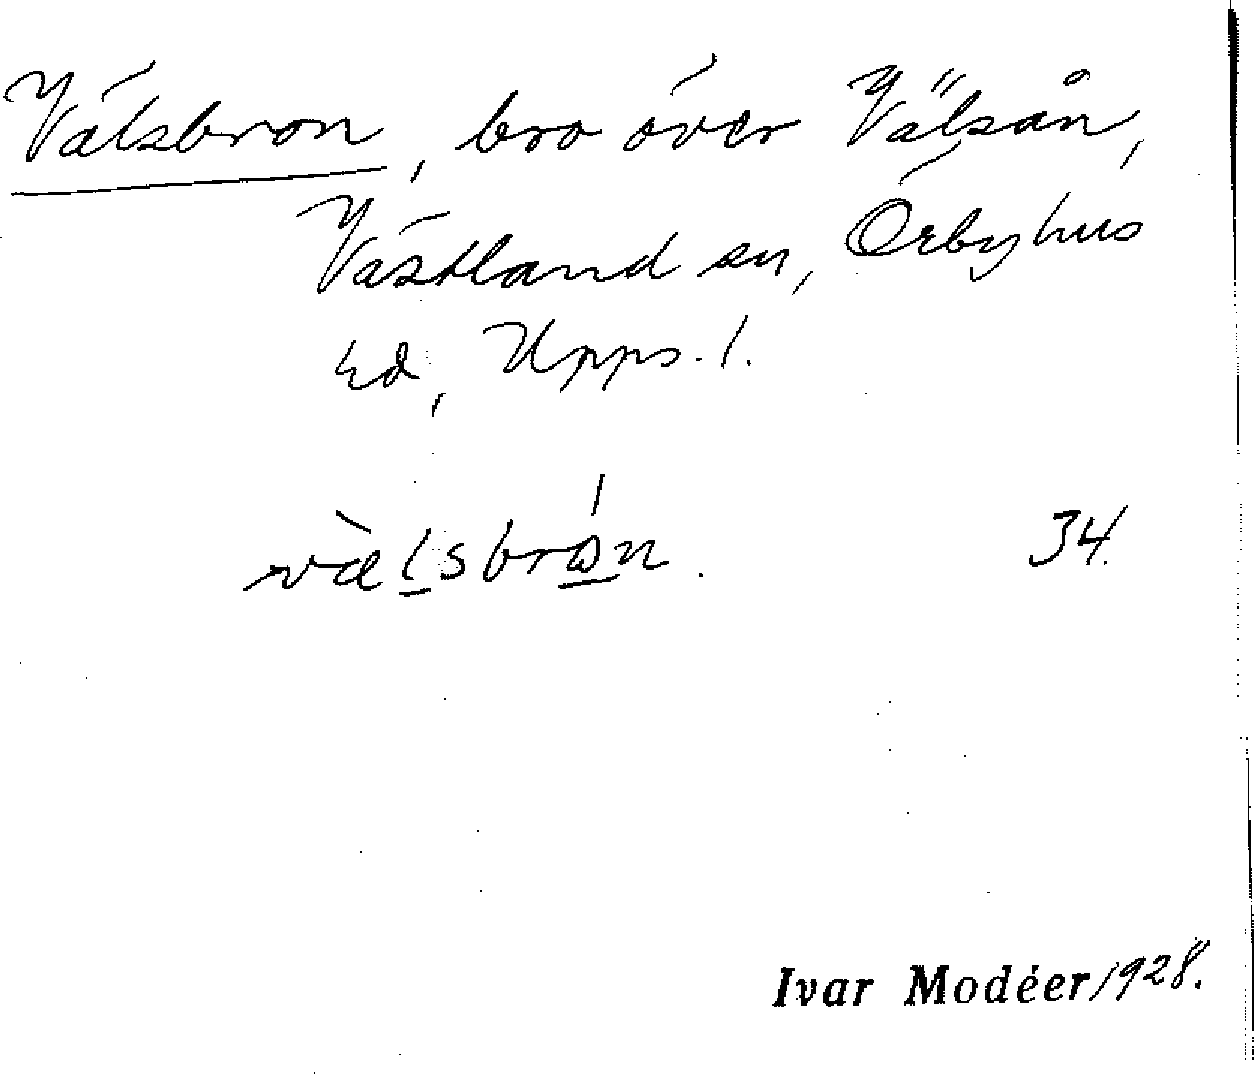 Välsbron, bro över Välsån,
Västland sn, Örbyhus
hd, Upps. l.
34.
Ivar Modéer 1928.